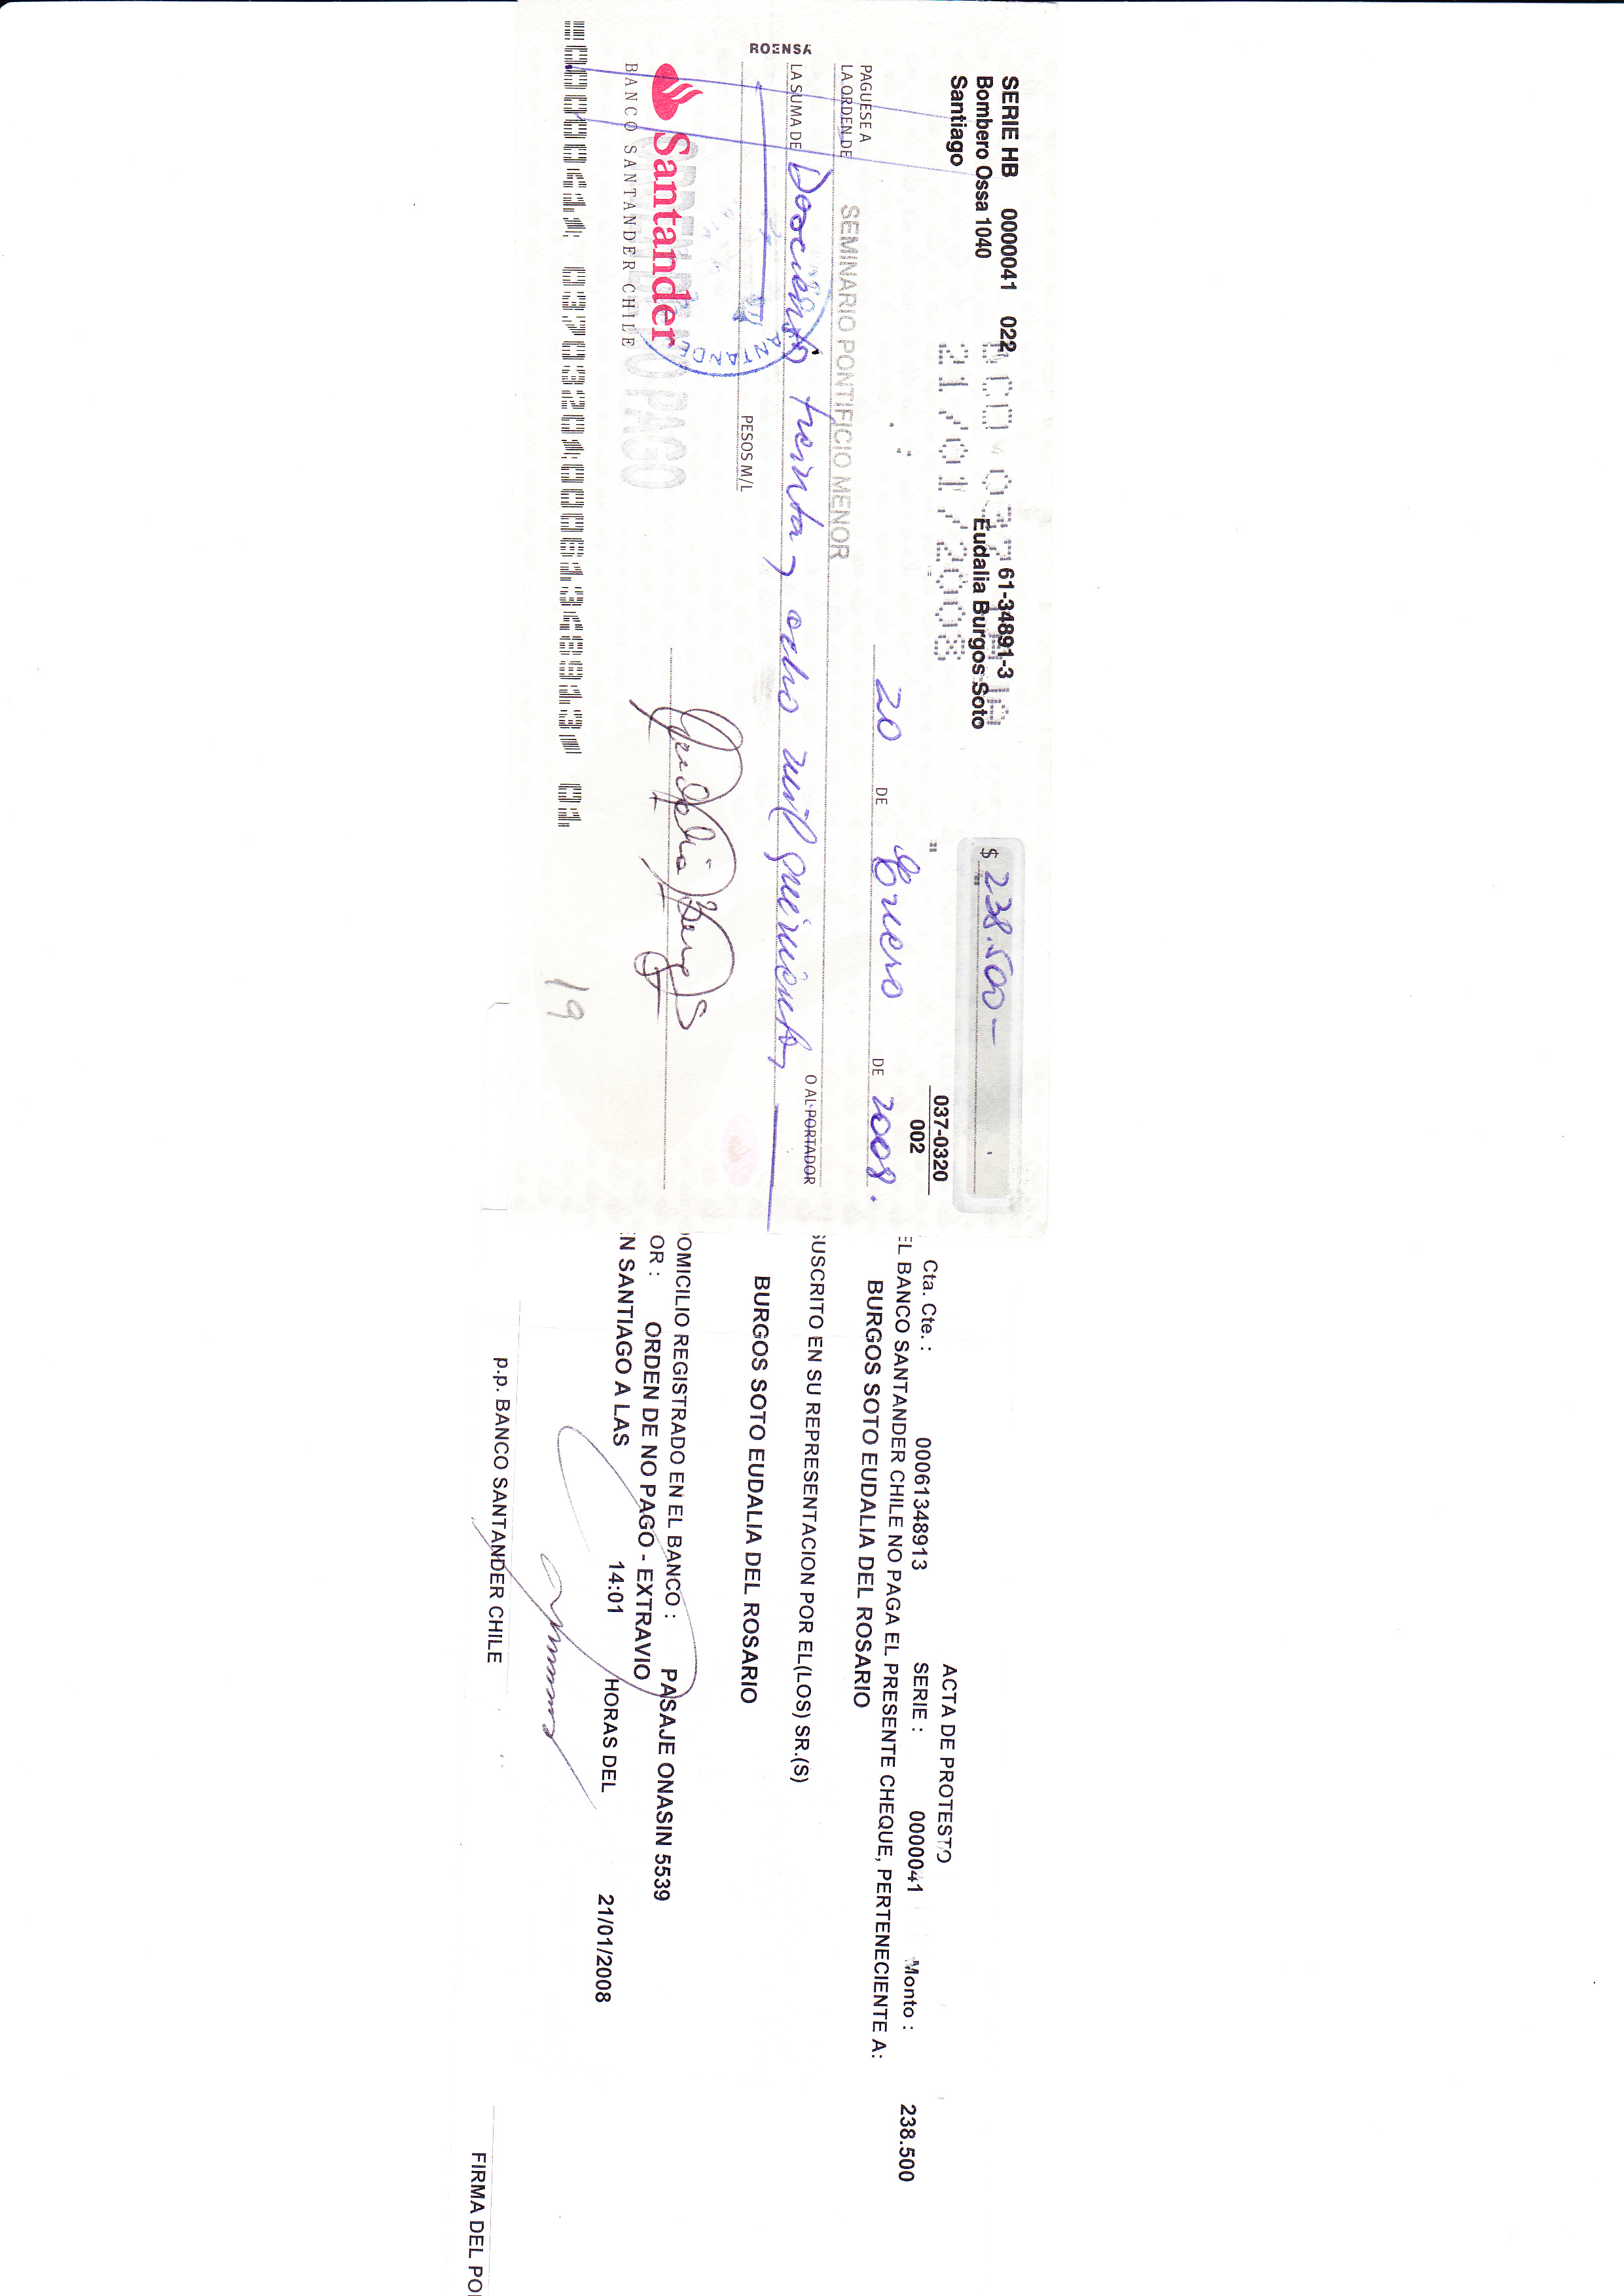 SERIE HB 0000041 022 61-34891-3
Bombero Ossa 1040 Eudalia Burgos Soto
Santiago
21/01/2008
$ 238.500-
037-0320
002
20 DE Enero DE 2008.
PAGUESE A
LA ORDEN DE SEMINARIO PONTIFICIO MENOR O AL PORTADOR
LA SUMA DE Doscientos treinta y ocho mil quinientos
PESOS M/L
ROENSA
Santander
BANCO SANTANDER CHILE
ANTANDE
O PAGO
19
ACTA DE PROTESTO
Cta. Cte. : 00061348913 SERIE : 0000041 Monto : 238.500
EL BANCO SANTANDER CHILE NO PAGA EL PRESENTE CHEQUE, PERTENECIENTE A:
BURGOS SOTO EUDALIA DEL ROSARIO
SUSCRITO EN SU REPRESENTACION POR EL(LOS) SR.(S)
BURGOS SOTO EUDALIA DEL ROSARIO
OMICILIO REGISTRADO EN EL BANCO : PASAJE ONASIN 5539
OR : ORDEN DE NO PAGO - EXTRAVIO
N SANTIAGO A LAS 14:01 HORAS DEL 21/01/2008
p.p. BANCO SANTANDER CHILE
FIRMA DEL PO